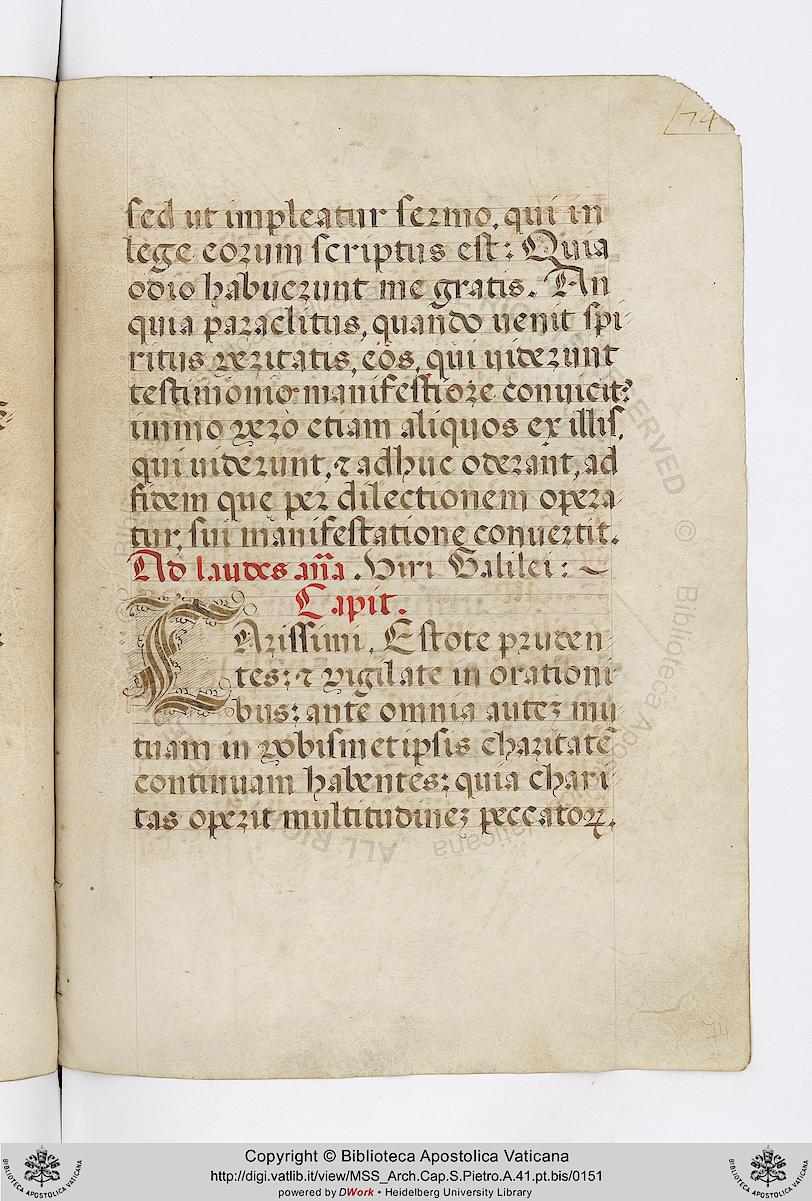 74
sed ut impleatur sermo, qui in
lege eorum scriptus est: Quia
odio habuerunt me gratis. An
quia paraclitus, quando uenit spi-
ritus veritatis, eos, qui uiderunt
testimonio manifestiore conuicit:
immo vero etiam aliquos ex illis,
qui uiderunt, ⁊ adhuc oderant, ad
fidem que per dilectionem opera-
tur, sui manifestatione conuertit.
Ad laudes aña. Viri Galilei: ~
Capit.
CArissimi, Estote pruden-
tes: ⁊ vigilate in orationi-
bus: ante omnia auteꝫ mu-
tuam in vobismetipsis charitatē
continuam habentes: quia chari-
tas operit multitudineꝫ peccatoꝝ.
74
Copyright © Biblioteca Apostolica Vaticana
http://digi.vatlib.it/view/MSS_Arch.Cap.S.Pietro.A.41.pt.bis/0151
powered by DWork • Heidelberg University Library